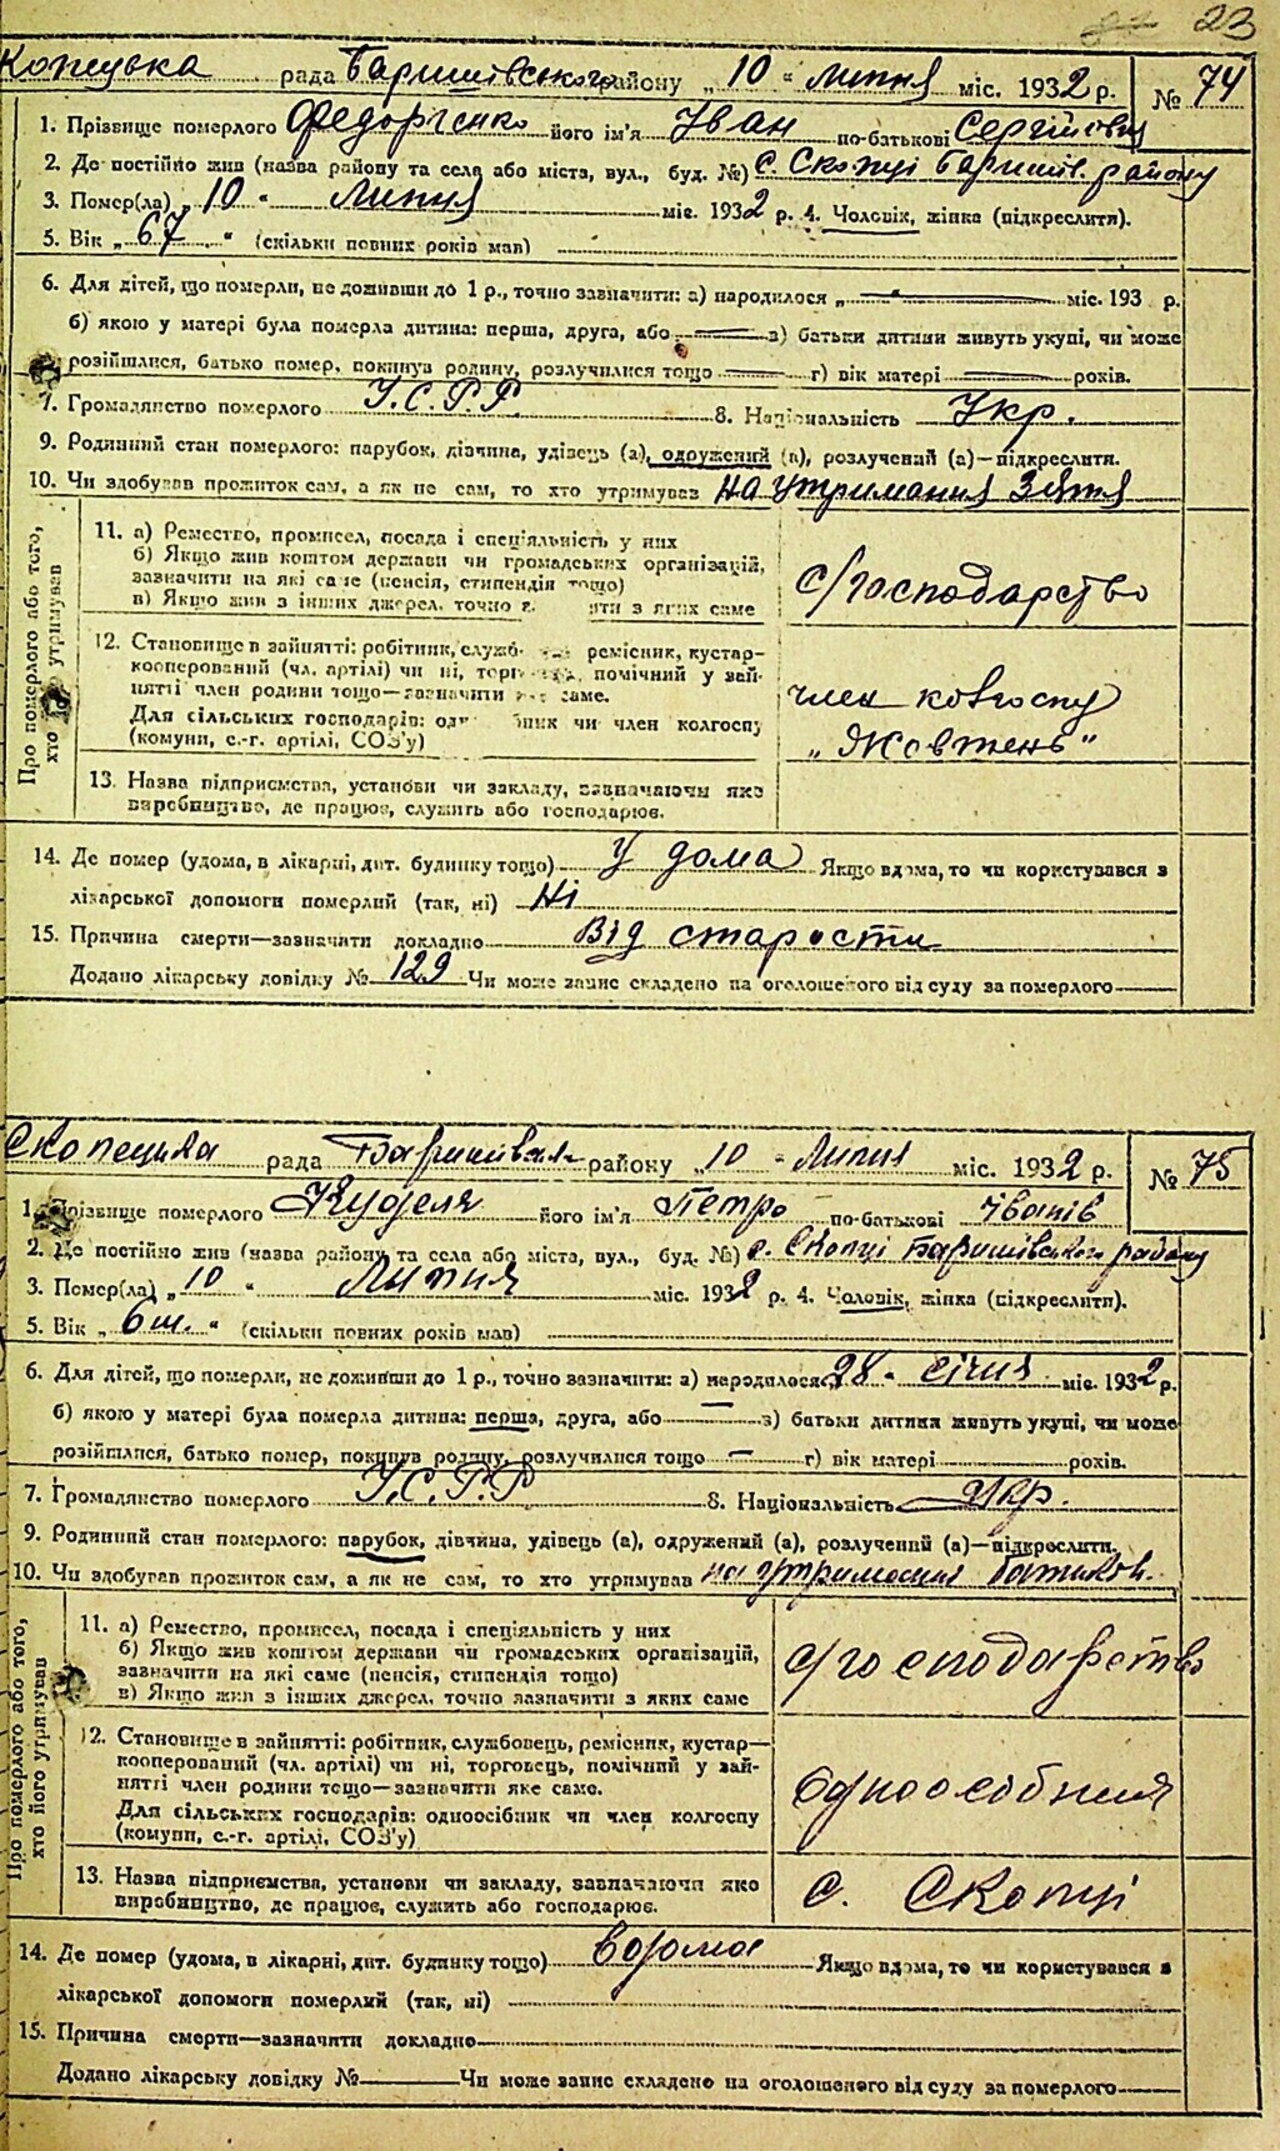 23
Копецька рада Баришівського району „10“ липня міс. 1932 р. № 74
1. Прізвище померлого Федорченко його ім'я Іван по-батькові Сергійович
2. Де постійно жив (назва району та села або міста, вул., буд. №) с. Скопці Баришів. району
3. Помер(ла) „10“ Липня міс. 1932 р. 4. Чоловік, жінка (підкреслити).
5. Вік „67“ (скільки повних років мав)
6. Для дітей, що померли, не доживши до 1 р., точно зазначити: а) народилося „ — “ міс. 193 р.
б) якою у матері була померла дитина: перша, друга, або — в) батьки дитини живуть укупі, чи може
розійшлися, батько помер, покинув родину, розлучилися тощо — г) вік матері — років.
7. Громадянство померлого У.С.Р.Р. 8. Національність Укр.
9. Родинний стан померлого: парубок, дівчина, удівець (а), одружений (а), розлучений (а)—підкреслити.
10. Чи здобував прожиток сам, а як не сам, то хто утримував на утримания Зятя
Про померлого або того, хто утримував
11. а) Ремество, промисел, посада і спеціяльність у них
б) Якщо жив коштом держави чи громадських організацій,
зазначити на які саме (пенсія, стипендія тощо)
в) Якщо жив з інших джерел, точно з ити з яких саме
с/господарство
12. Становище в зайнятті: робітник, служб ремісник, кустар-
кооперований (чл. артілі) чи ні, торг помічний у зай-
нятті член родини тощо—зазначити яке саме.
Для сільських господарів: од бник чи член колгоспу
(комуни, с.-г. артілі, СОЗ'у)
член ковгоспу
„Жовтень“
13. Назва підприємства, установи чи закладу, зазначаючи яке
виробництво, де працює, служить або господарює.
14. Де помер (удома, в лікарні, дит. будинку тощо) У дома Якщо вдома, то чи користувався з
лікарської допомоги померлий (так, ні) Ні
15. Причина смерти—зазначити докладно Від старости
Додано лікарську довідку № 129 Чи може запис складено на оголошеного від суду за померлого
Скопецька рада Баришівськ району „10“ Липня міс. 1932 р. № 75
1. Прізвище померлого Куделя його ім'я Петро по-батькові Іванів
2. Де постійно жив (назва району та села або міста, вул., буд. №) с. Скопці Баришівського району
3. Помер(ла) „10“ Липня міс. 1932 р. 4. Чоловік, жінка (підкреслити).
5. Вік „6 м.“ (скільки повних років мав)
6. Для дітей, що померли, не доживши до 1 р., точно зазначити: а) народилося „28“ Січня міс. 1932 р.
б) якою у матері була померла дитина: перша, друга, або — в) батьки дитини живуть укупі, чи може
розійшлися, батько помер, покинув родину, розлучилися тощо — г) вік матері років.
7. Громадянство померлого У.С.Р.Р 8. Національність Укр.
9. Родинний стан померлого: парубок, дівчина, удівець (а), одружений (а), розлучений (а)—підкреслити.
10. Чи здобував прожиток сам, а як не сам, то хто утримував на утримания батьков.
Про померлого або того, хто його утримував
11. а) Ремество, промисел, посада і спеціяльність у них
б) Якщо жив коштом держави чи громадських організацій,
зазначити на які саме (пенсія, стипендія тощо)
в) Якщо жив з інших джерел, точно зазначити з яких саме
с/господарство
12. Становище в зайнятті: робітник, службовець, ремісник, кустар—
кооперований (чл. артілі) чи ні, торговець, помічний у зай-
нятті член родини тощо—зазначити яке саме.
Для сільських господарів: одноосібник чи член колгоспу
(комуни, с.-г. артілі, СОЗ'у)
Одноосібния
13. Назва підприємства, установи чи закладу, зазначаючи яко
виробництво, де працює, служить або господарює.
с. Скопці
14. Де помер (удома, в лікарні, дит. будинку тощо) вдома Якщо вдома, то чи користувався з
лікарської допомоги померлий (так, ні)
15. Причина смерти—зазначити докладно
Додано лікарську довідку № Чи може запис складено на оголошеного від суду за померлого